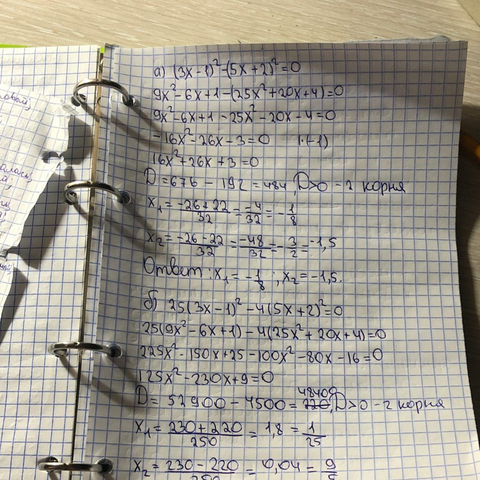 а) (3x-1)²-(5x+2)²=0
9x²-6x+1-(25x²+20x+4)=0
9x²-6x+1-25x²-20x-4=0
-16x²-26x-3=0 |·(-1)
16x²+26x+3=0
D=676-192=484, D>0 - 2 корня
x₁=-26+22/32=-4/32=-1/8
x₂=-26-22/32=-48/32=-3/2=-1,5
Ответ: x₁=-1/8; x₂=-1,5.
б) 25(3x-1)²-4(5x+2)²=0
25(9x²-6x+1)-4(25x²+20x+4)=0
225x²-150x+25-100x²-80x-16=0
125x²-230x+9=0
48400
D=52900-4500=220, D>0 - 2 корня
x₁=230+220/250=1,8=1/25
x₂=230-220/250=0,04=9/5